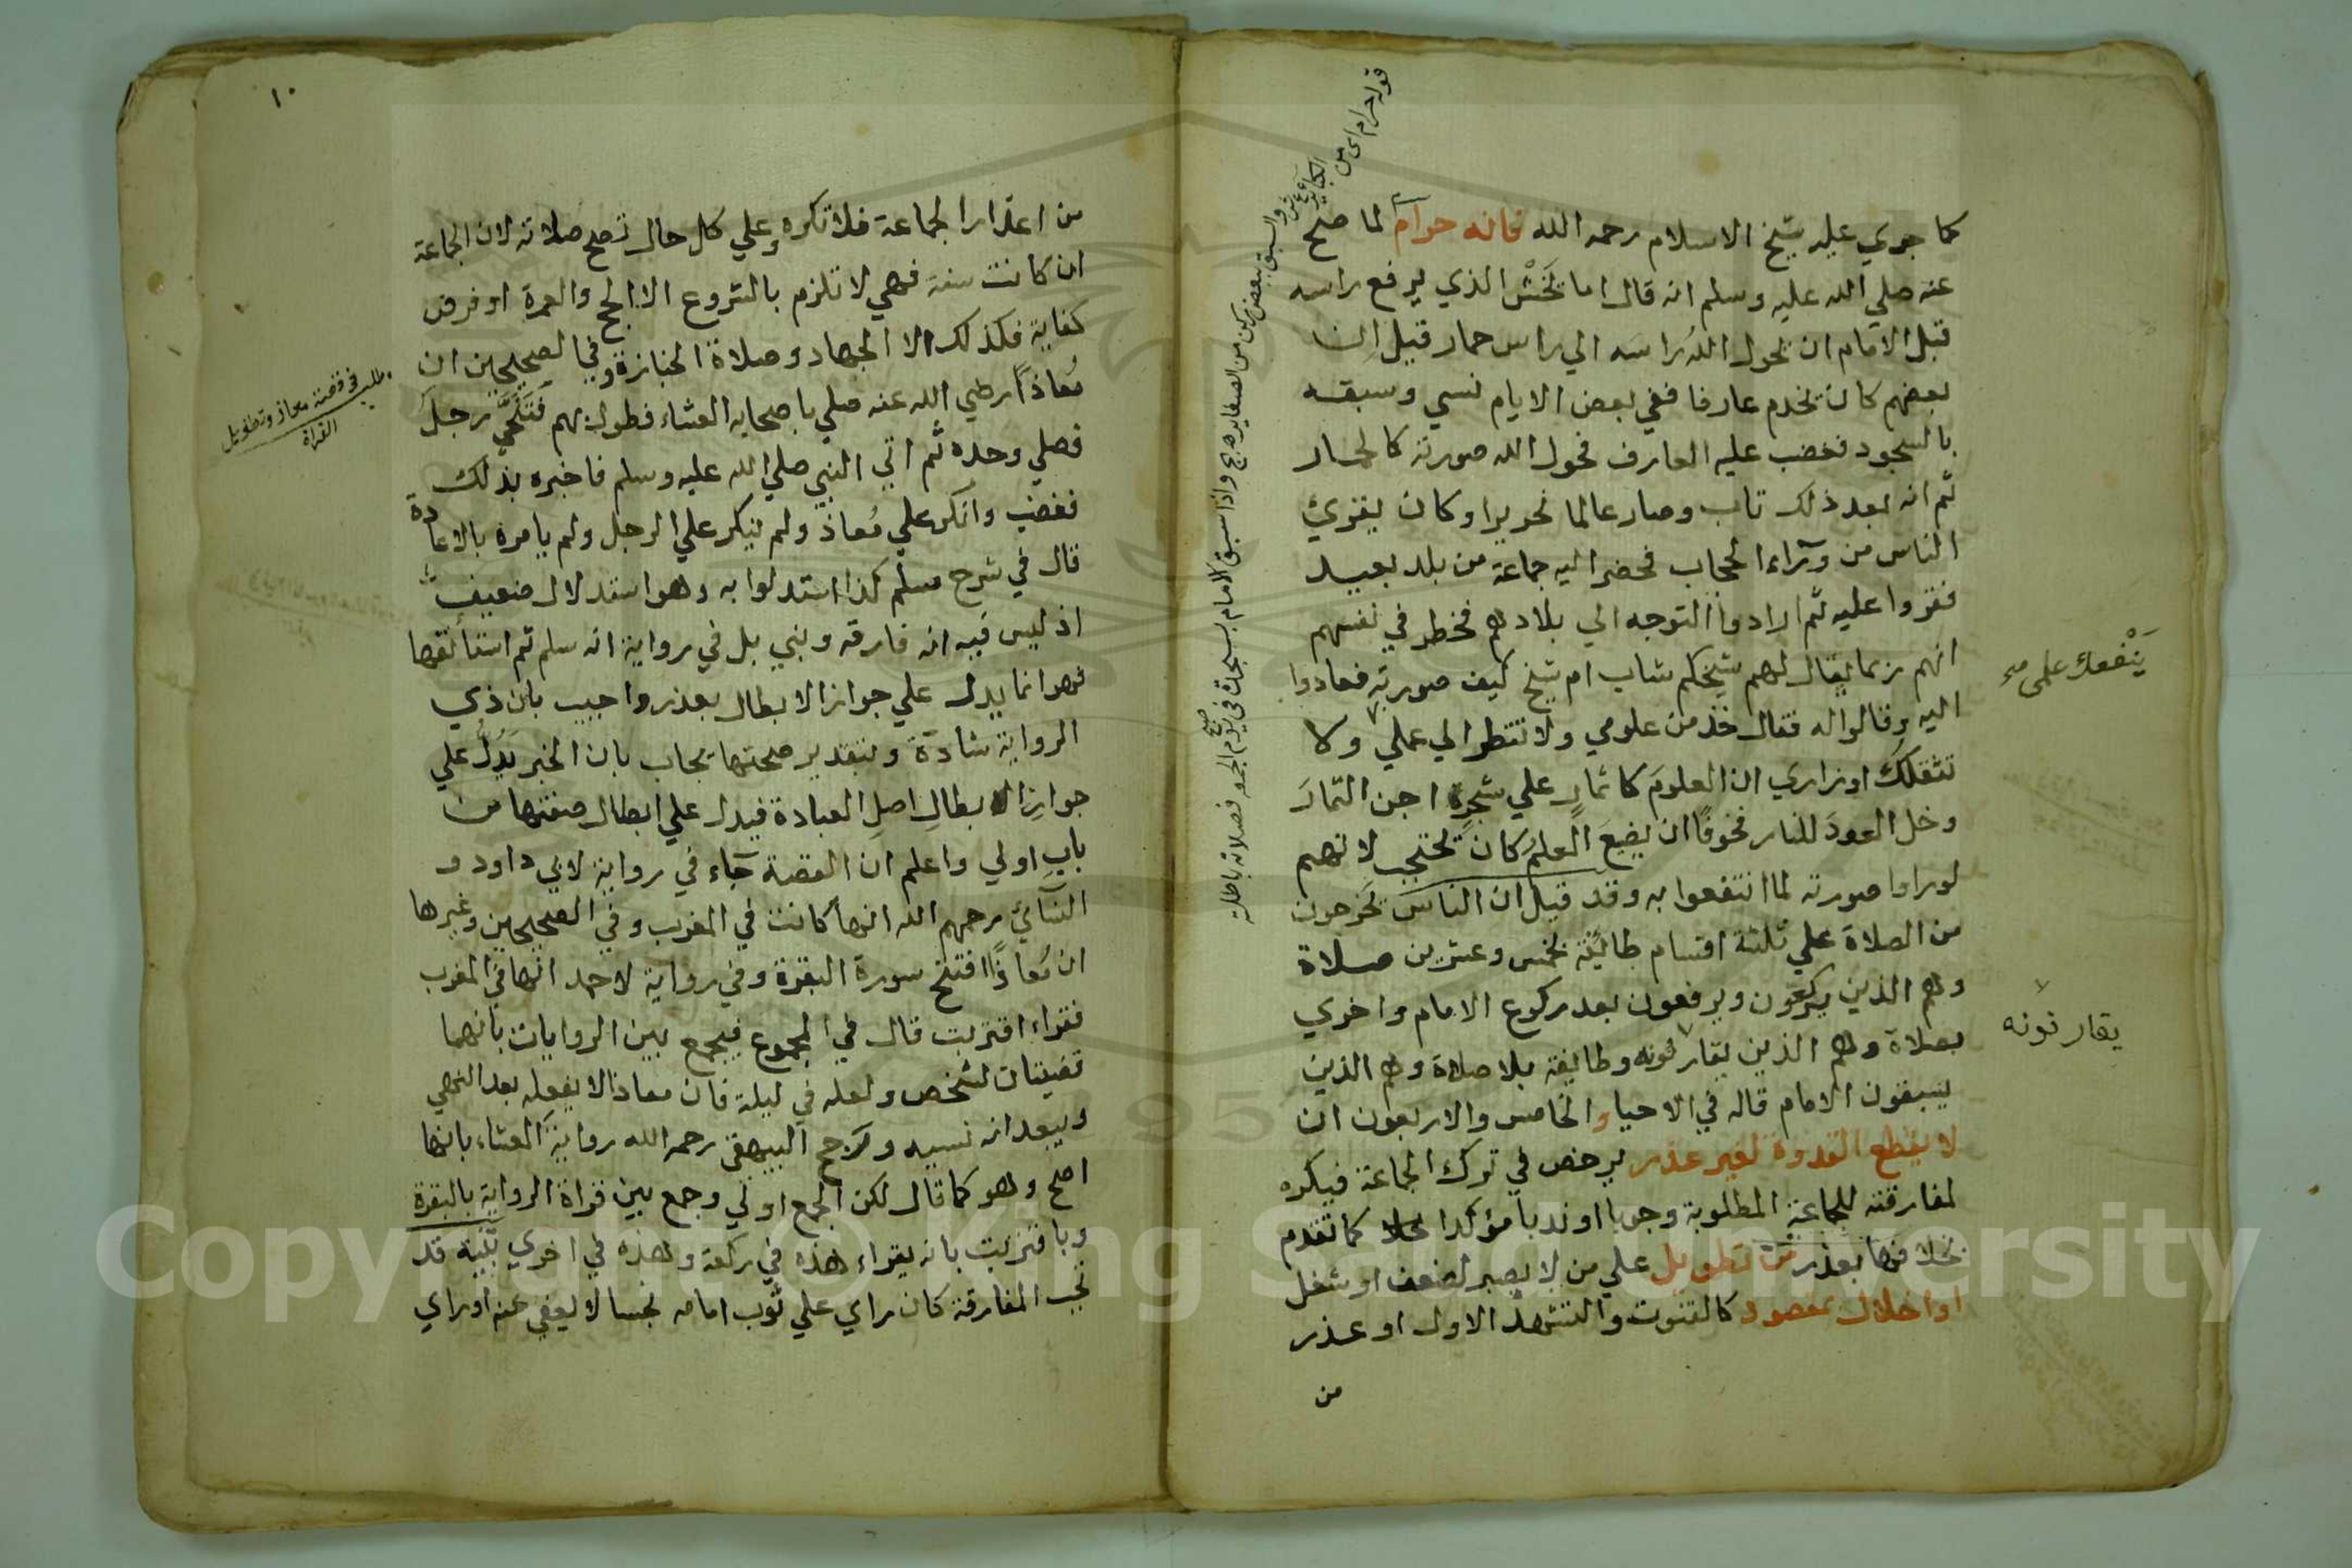 كما جري عليه شيخ الاسلام رحمه الله فانه حرام لما صح
عنه صلي الله عليه وسلم انه قال اما يخش الذي يرفع راسه
قبل الامام ان يحول الله راسه الي راس حمار قيل ان
بعضهم كان يخدم عارفا ففي بعض الايام نسي وسبقه
بالسجود فغضب عليه العارف فحول الله صورته كالحمار
ثم انه بعد ذلك تاب وصار عالما نحويرا وكان يقرئ
الناس من وراء الحجاب فحضر اليه جماعة من بلد بعيد
فقروا عليه ثم ارادوا التوجه الي بلادهم فخطر في نفسهم
انهم ربما يقال لهم شيخكم شاب ام شيخ كيف صورته فعادوا
اليه وقالوا له فقال خذ من علومي ولا تنظر الي عملي ولا
تثقلك اوزاري ان العلوم كاثمار علي شجرة اجن الثمار
وخل العود للنار فخوفا ان يضيع العلم كان يحتجب لانهم
لو راوا صورته لما انتفعوا به وقد قيل ان الناس يخرجون
من الصلاة علي ثلثة اقسام طائفة بخمس وعشرين صلاة
وهم الذين يركعون ويرفعون بعد ركوع الامام واخري
بصلاة وهم الذين يقارنونه وطايفة بلا صلاة وهم الذين
يسبقون الامام قاله في الاحيا والخامس والاربعون ان
لا يقطع القدوة لغير عذر يرخص في ترك الجماعة فيكره
لمفارقته للجماعة المطلوبة وجوبا او ندبا مؤكدا كما تقدم
بخلافها بعذر من تطويل علي من لا يصبر لضعف او شغل
او اخلال بمقصود كالقنوت والتشهد الاول او عذر
من
قوله حرام اي من الكبائر
والسبق ببعض ركن من الصغاير واذا سبق الامام بسجدة في يوم الجمعه فصلاته باطلة
ينفعك علمي صح
يقارنونه
١٠
من اعذار الجماعة فلا تكره وعلي كل حال تصح صلاته لان الجماعة
ان كانت سنة فهي لا تلزم بالشروع الا الحج والعمرة او فرض
كفاية فكذلك الا الجهاد وصلاة الجنازة وفي الصحيحين ان
معاذا رضي الله عنه صلي باصحابه العشاء فطول بهم فتنحي رجل
فصلي وحده ثم اتي النبي صلي الله عليه وسلم فاخبره بذلك
فغضب وانكر علي معاذ ولم ينكر علي الرجل ولم يامره بالاعادة
قال في شرح مسلم كذا استدلوا به وهو استدلال ضعيف
اذ ليس فيه انه فارقه وبني بل في رواية انه سلم ثم استأنفها
فهو انما يدل علي جواز الابطال بعذر واجيب بان ذي
الرواية شاذة وبتقدير صحتها يجاب بان الخبر يدل علي
جواز ابطال اصل العبادة فيدل علي ابطال صفتها من
باب اولي واعلم ان القصة جاء في رواية لابي داود و
النسائي رحمهم الله انها كانت في المغرب وفي الصحيحين وغيرها
ان معاذا افتتح سورة البقرة وفي رواية لاحمد انها في المغرب
فقراء اقتربت قال في المجموع فيجمع بين الروايات بانهما
قضيتان لشخص ولعله في ليلة فان معاذا لا يفعله بعد النهي
ويبعد انه نسيه ورجح البيهقي رحمه الله رواية العشاء بانها
اصح وهو كما قال لكن الجمع اولي وجمع بين قراة الرواية بالبقرة
وباقتربت بانه يقراء هذه في ركعة وهذه في اخري تنبيه قد
تجب المفارقة كان راي علي ثوب امامه نجسا لا يعفي عنه او راي
مطلب في قصة معاذ وتطويل
القراة
Copyright © King Saud University